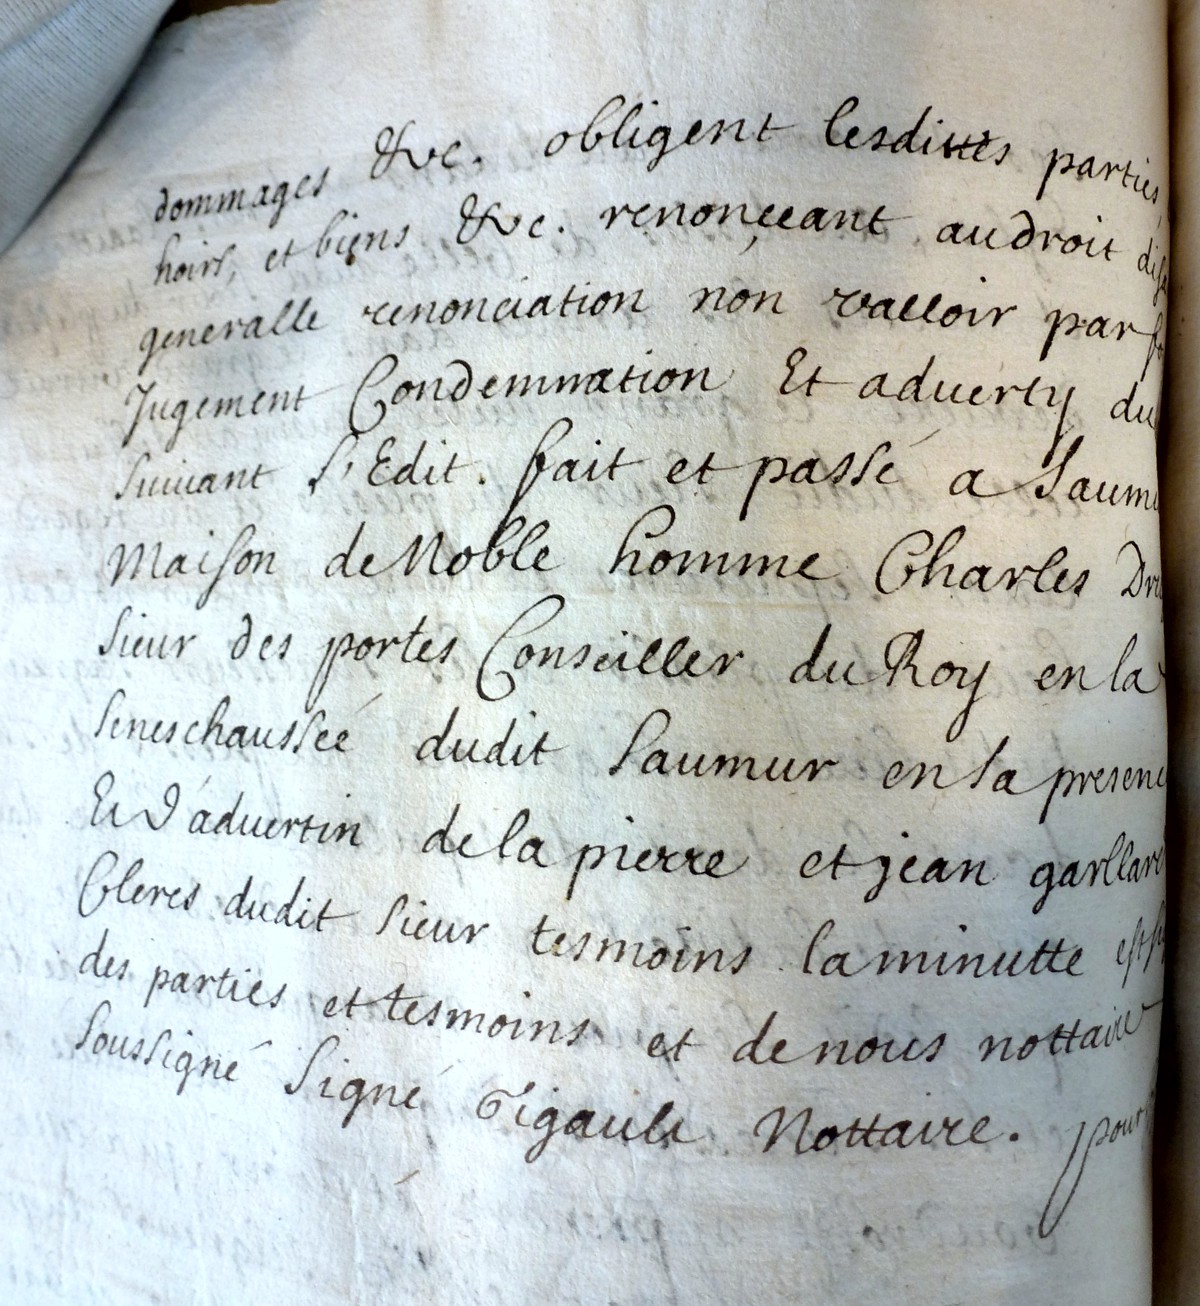 dommages &c. obligent lesdittes parties
hoirs, et biens &c. renonçeant audroit
generalle renonciation non valloir par
Jugement Condemnation Et aduerty du
suiuant l'Edit. fait et passé a
Maison de Noble homme Charles
sieur des portes Conseiller du Roy en la
seneschaussée dudit Saumur en sa
Et d'aduertin de la pierre et jean
Clercs dudit sieur tesmoins la minutte est
des parties et tesmoins et de nous nottaire
soussigné signé Gigault Nottaire. pour